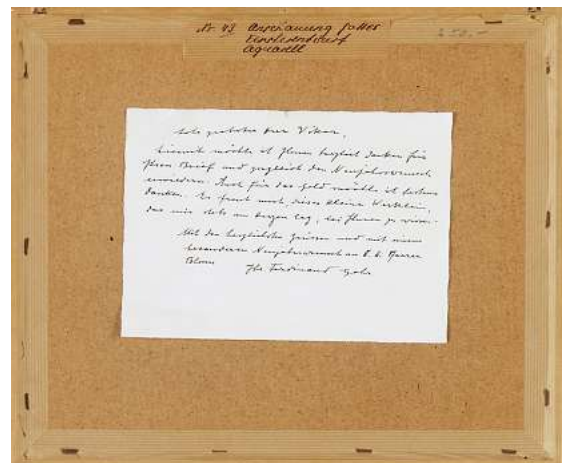 Nr 43 Anschauung Gottes
Fensterentwurf
Aquarell
250.-
Sehr geehrter Herr Vikar,
hiermit möchte ich Ihnen herzlich danken für
Ihren Brief und zugleich den Neujahrswunsch
erwiedern. Auch für das Geld möchte ich bestens
danken. Es freut mich, dieses kleine Werklein,
das mir sehr am Herzen lag, bei Ihnen zu wissen.
Mit den herzlichsten Grüssen und mit einem
besonderen Neujahrswunsch an Pfarrer
Ihr Ferdinand Gehr